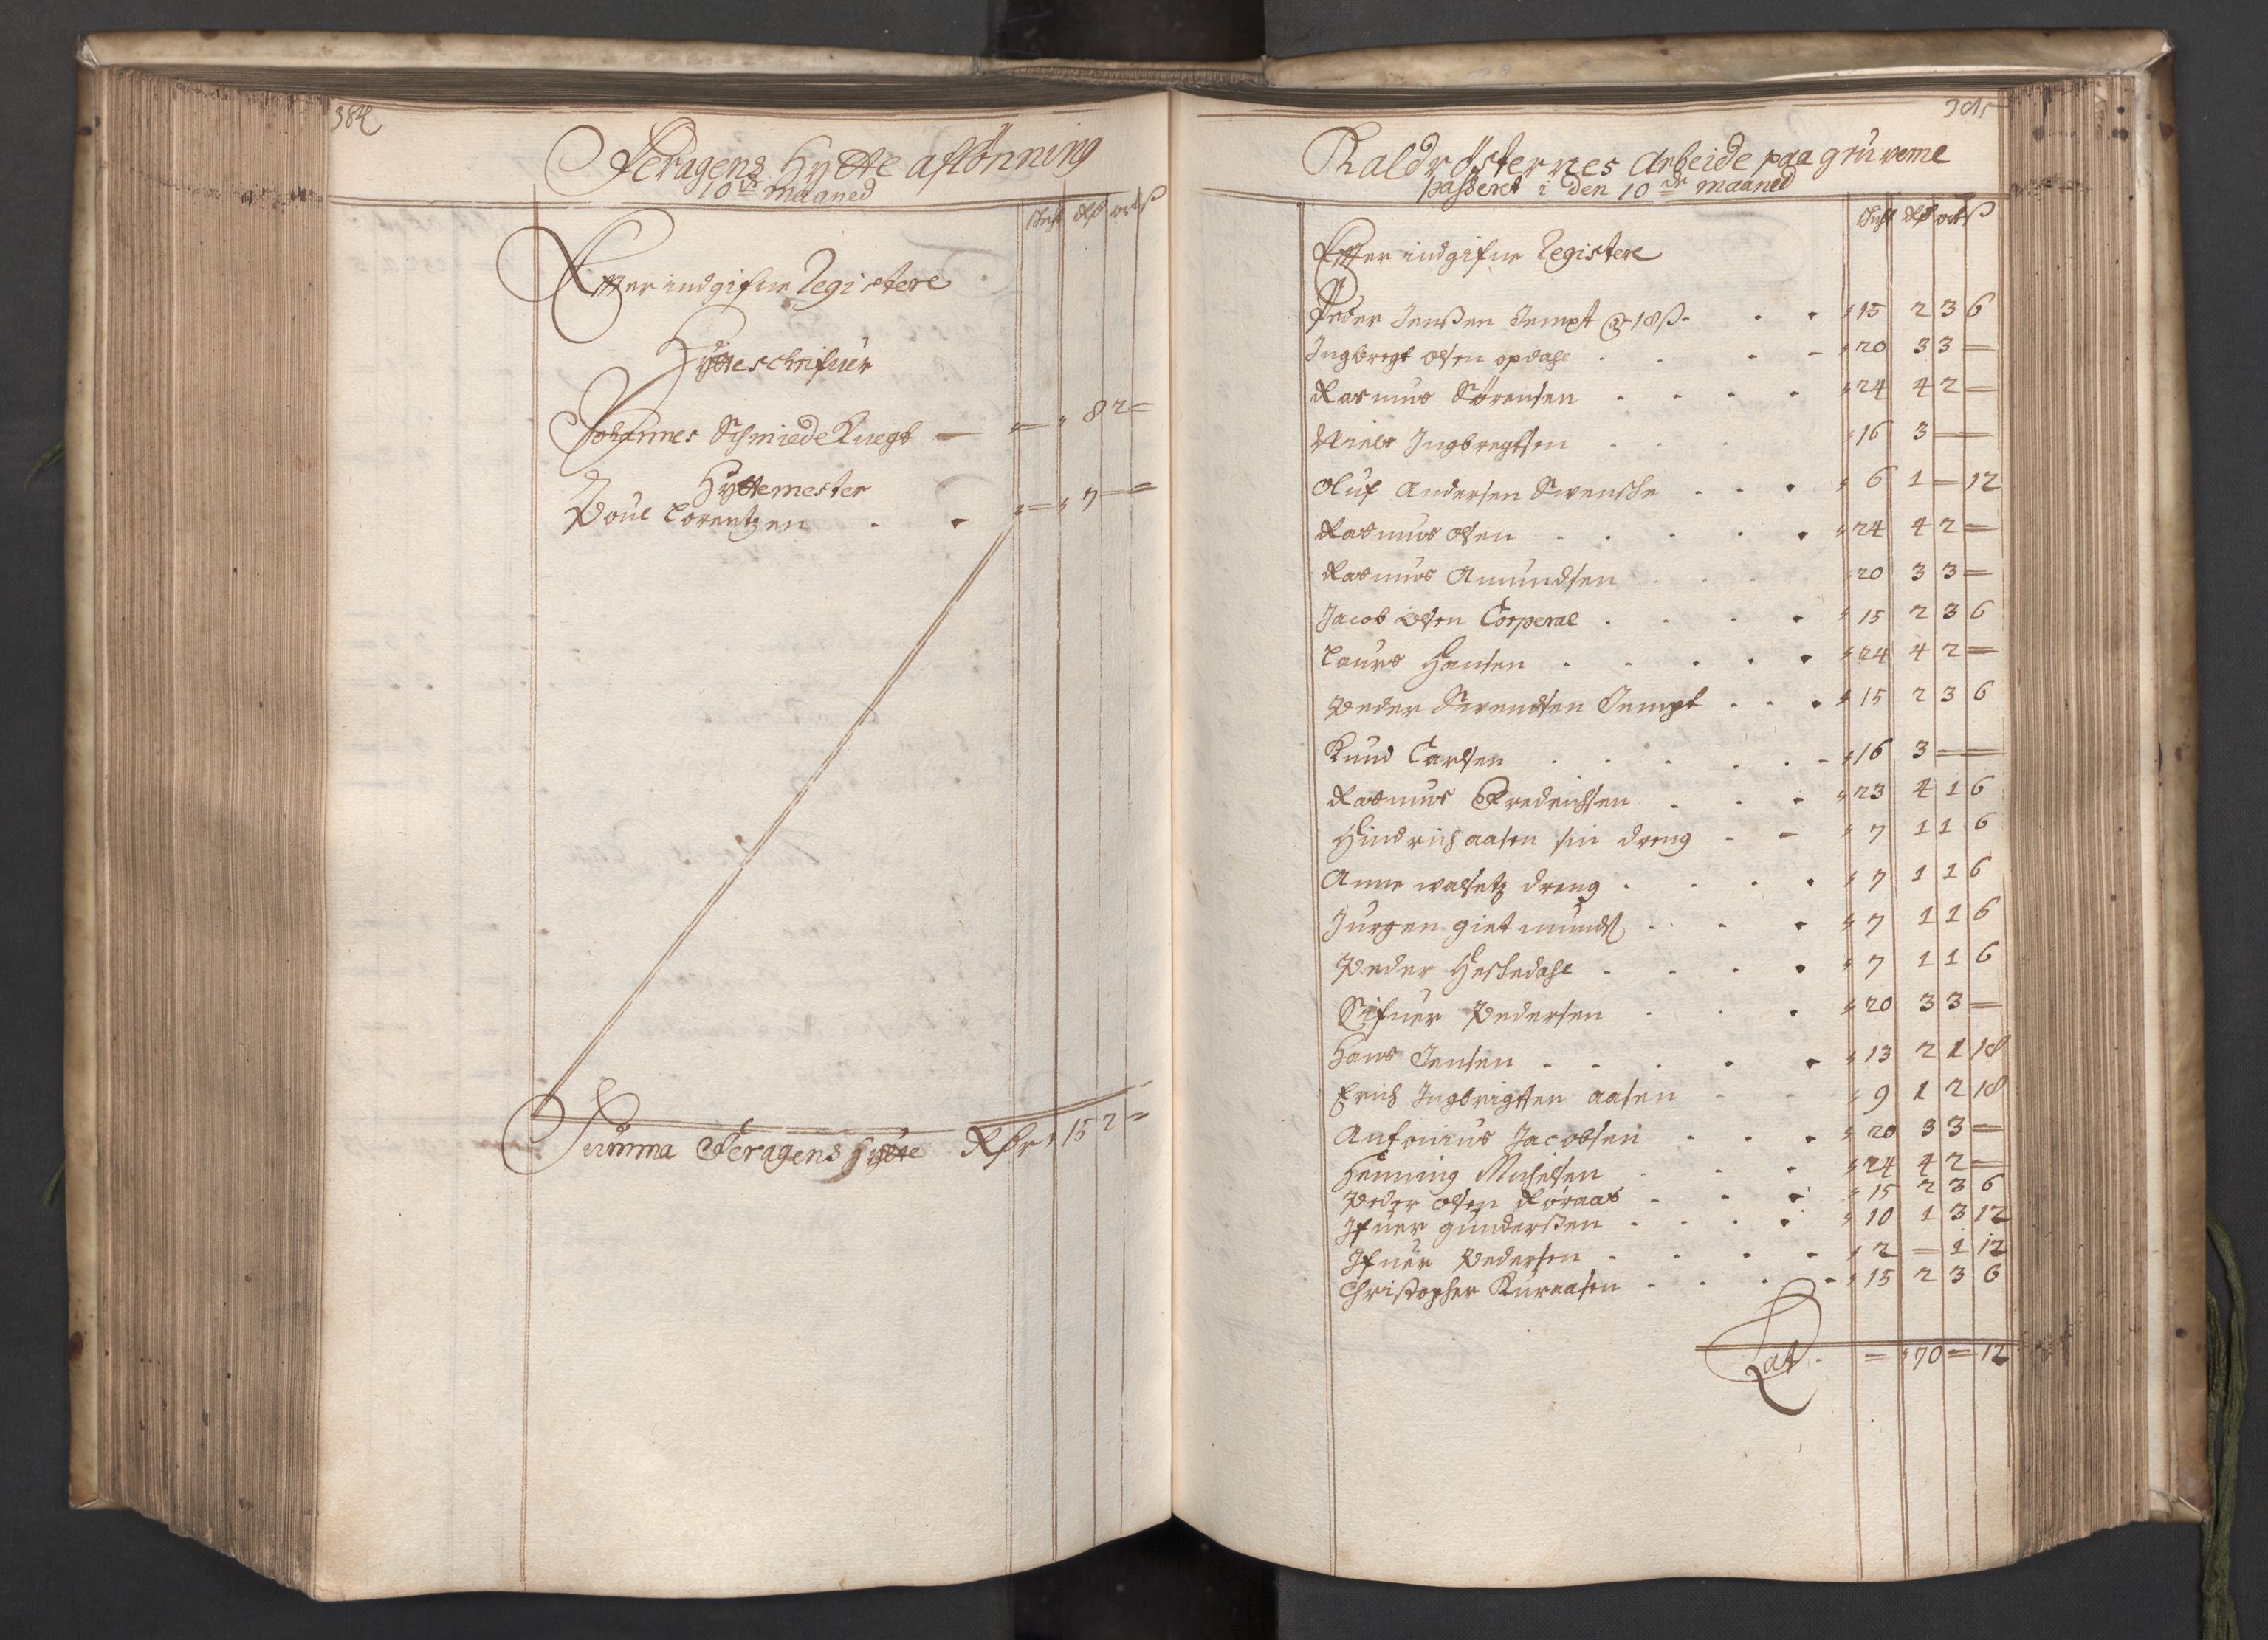 384
Feragens Hytte aflønning
10de maaned
Scht Rdr ort ß
Effter indgifne Registere
Hytteschrifuer
Johannes Schmiedeknegt — = 8 2 =
Hyttemester
Poul Lorentzen . . = 7 — =
Summa Feragens Hytte Rdr 15 2 =
385
Kaldrösternes Arbeide paa gruverne
passeret i den 10de maaned
Scht Rdr ort ß
Effter indgifne Registere
Peder Jenßen Jempt @ 18 ß - . . 15 2 3 6
Ingbregt Olsen opdahl . . . - 20 3 3 —
Rasmus Sørensen . . . . 24 4 2 —
Niels Ingbregtsen . . . 16 3 — —
Oluf Andersen Swensche . . . 6 1 — 12
Rasmus Olsen . . . . . 24 4 2 —
Rasmus Amundsen . . . 20 3 3 —
Jacob Olsen Corperal . . . . 15 2 3 6
Laurs Hansen . . . . . 24 4 2 —
Peder Swendsen Jempt . . . 15 2 3 6
Knud Carlsen . . . . . - 16 3 — —
Rasmus Fredrichsen . . . 23 4 1 6
Hindrich aasen sin dreng - - 7 1 1 6
Anne walsetz dreng . . . . 7 1 1 6
Jurgen giet munds . . . 7 1 1 6
Peder Heskedahl . . . . 7 1 1 6
Sifuer Pedersen . . . 20 3 3 —
Hans Jensen . . . . . 13 2 1 18
Erich Ingbrigtsen aasen . . . 9 1 2 18
Antonius Jacobsen . . . 20 3 3 —
Henning Michelsen . . . 24 4 2 —
Peder Olsen Røraas . . . 15 2 3 6
Ifuer gunderßen . . . . 10 1 3 12
Ifuer Pedersen . . . . 2 — 1 12
Christopher Kuraasen . . . - 15 2 3 6
Lat. = 70 = 12